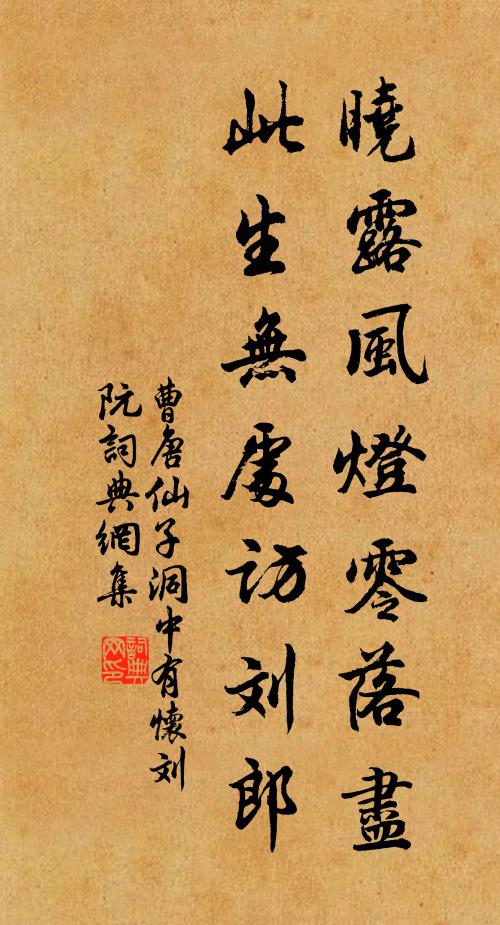 曉露風燈零落盡
此生無處訪刘郎
曹唐仙子洞中有懷刘
阮詞典網集
詞典
网印